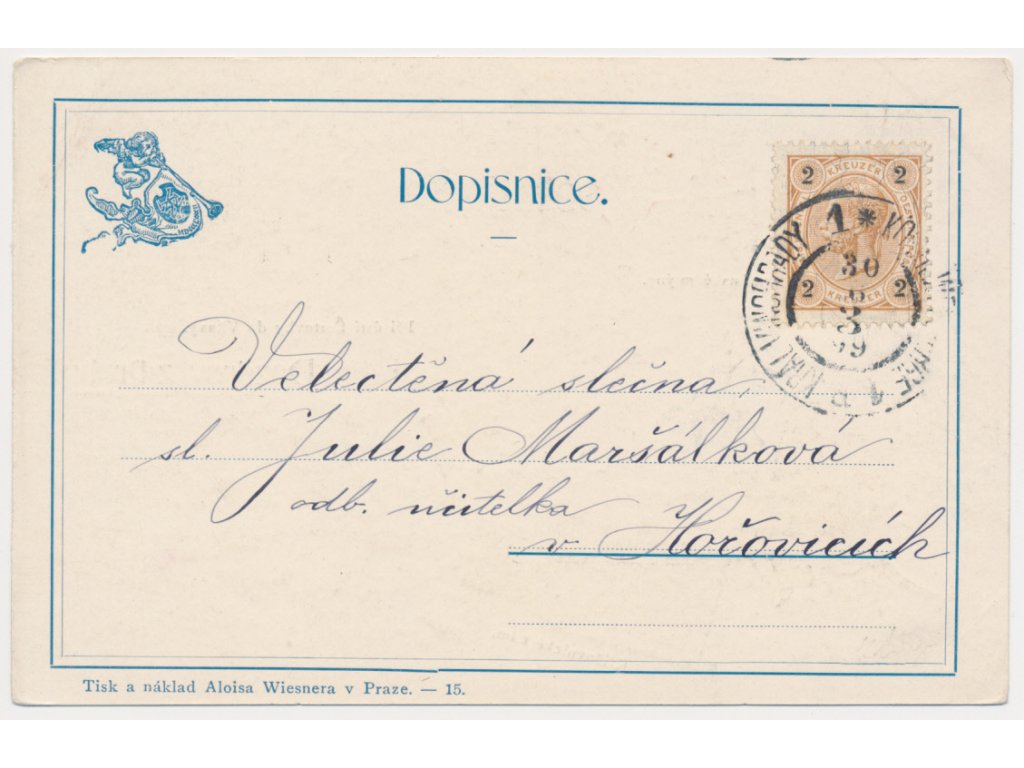 Dopisnice.
2 KREUZER 2
2 KREUZER 2
1 * KÖ
30
3
99
KRÁL. VINOHRADY 1
Velectěná slečna,
sl. Julie Maršálková
odb. učitelka
v Hořovicích
Tisk a náklad Aloisa Wiesnera v Praze. — 15.